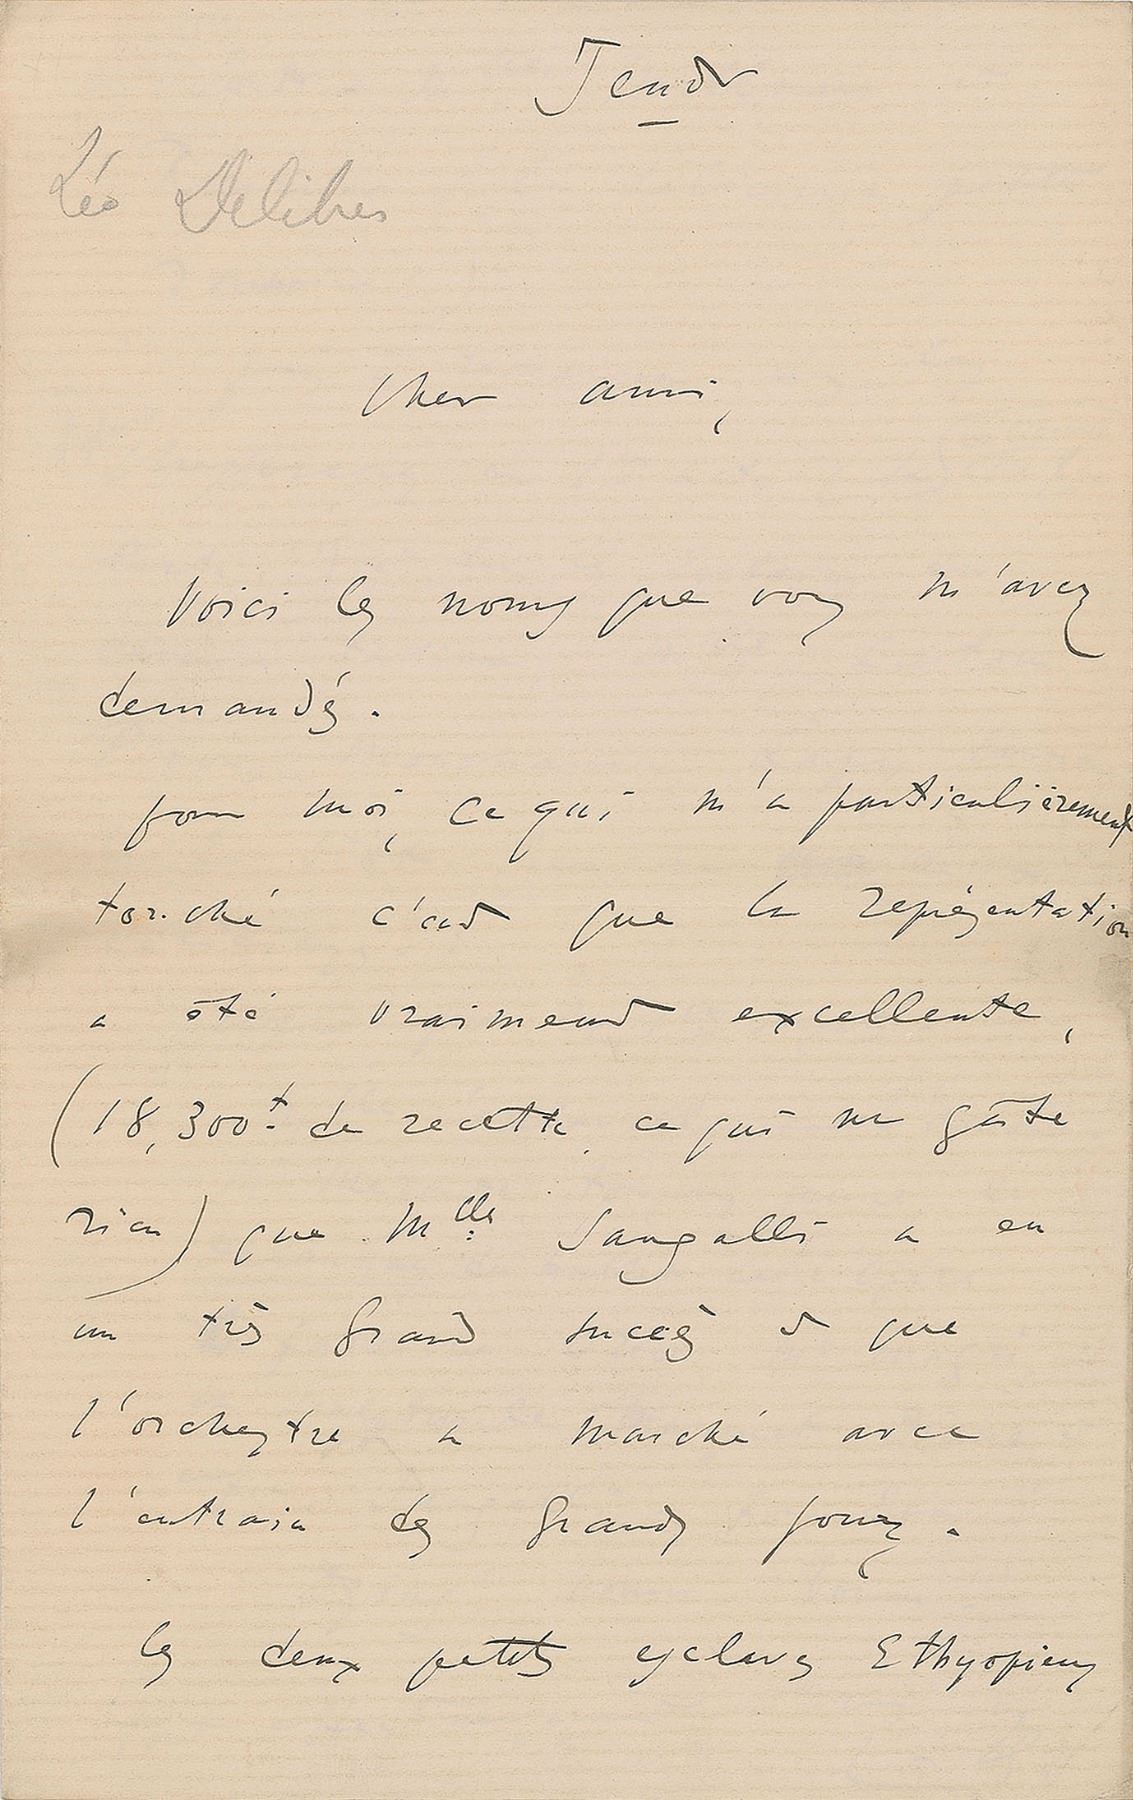 Jeudi
Léo Delibes
Cher ami,
Voici les noms que vous m'avez
demandés.
pour moi, ce qui m'a particulièrement
touché c'est que la représentation
a été vraiment excellente,
(18,300f. de recette, ce qui ne gâte
rien) que Mlle Sangalli a eu
un très grand succès et que
l'orchestre a marché avec
l'entrain des grands jours.
les deux petits esclaves Ethyopiens